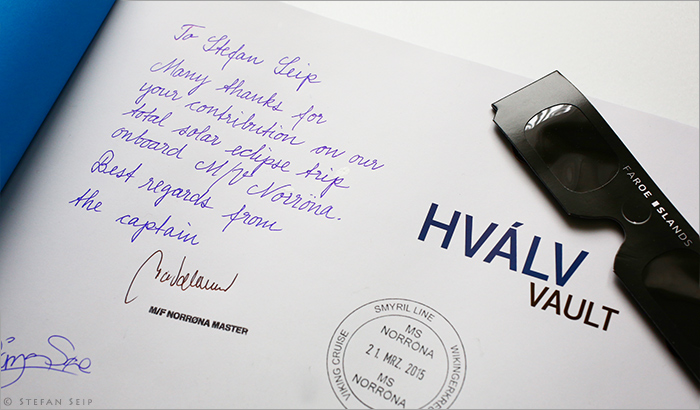 To Stefan Seip
Many thanks for
your contribution on our
total solar eclipse trip
onboard M/F Norröna.
Best regards from
the captain
M/F NORRØNA MASTER
HVÁLV
VAULT
FAROE ISLANDS
SMYRIL LINE
VIKING CRUISE
WIKINGERKREU
MS
NORRONA
21. MRZ. 2015
MS
NORRONA
© STEFAN SEIP